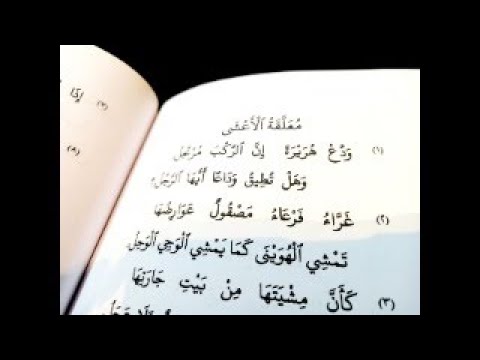 مُعَلَّقَةُ الأَعْشَى
(١) وَدِّعْ هُرَيْرَةَ إِنَّ الرَّكْبَ مُرْتَحِلُ
وَهَلْ تُطِيقُ وَدَاعًا أَيُّهَا الرَّجُلُ
(٢) غَرَّاءُ فَرْعَاءُ مَصْقُولٌ عَوَارِضُهَا
تَمْشِي الْهُوَيْنَى كَمَا يَمْشِي الْوَجِي الْوَحِلُ
(٣) كَأَنَّ مِشْيَتَهَا مِنْ بَيْتِ جَارَتِهَا
(٧) إِذَا
(٨)